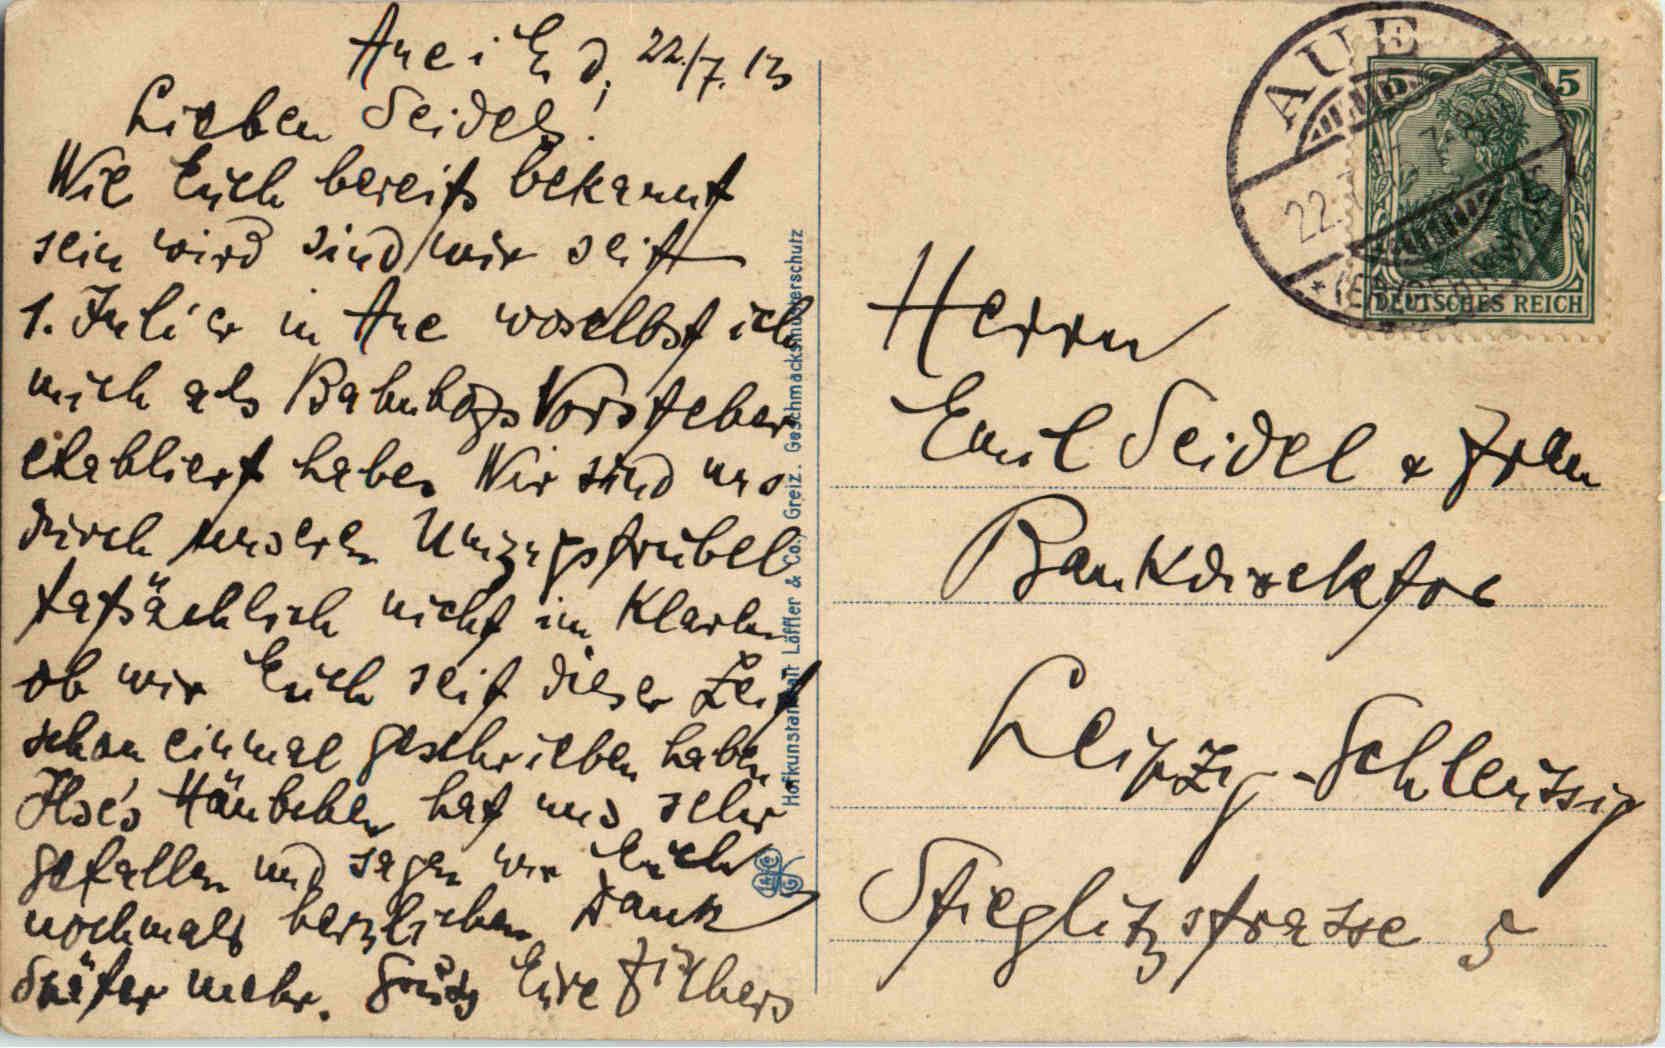 Aue i E. d. 22./7. 13
Lieben Seidels!
Wie Euch bereits bekannt
sein wird sind wir seit
1. Juli cr in Aue woselbst ich
mich als Bahnhofs Vorsteher
etabliert habe. Wir sind uns
durch unseren Umzugstrubel
tatsächlich nicht im Klaren
ob wir Euch seit dieser Zeit
schon einmal geschrieben haben
Ilse's Häubchen hat uns sehr
gefallen und sagen wir Euch
nochmals herzlichen Dank
Später mehr. Gruß Eure
Hofkunstanstalt Löffler & Co., Greiz. Geschmacksmusterschutz
AUE
22.
(ERZGEB.)
5 5
DEUTSCHES REICH
Herrn
Emil Seidel & Frau
Bankdirektor
Leipzig-Schleussig
Stieglitzstrasse 5